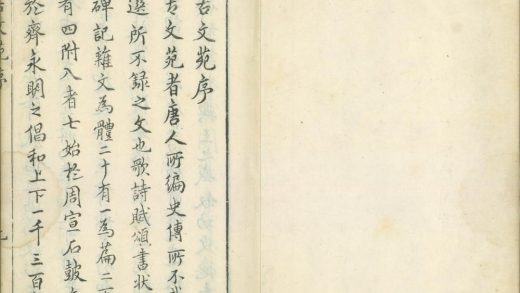 古文苑序
古文苑者唐人所編史傳所不載
選所不錄之文也歌詩賦頌書狀
碑記雜文為體二十有一為篇二百
有四附入者七始於周宣石鼓文
於齊永明之倡和上下一千三百
古文苑序